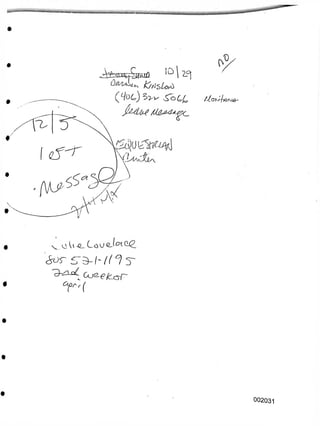 10/29
no
Darren Kinslow
(406) 322 5066 Montana
leave Message
12/5
left
Message
EQUESTRIAN
Center
Julie Lovelace
805 521-1195
2nd week of
april
002031